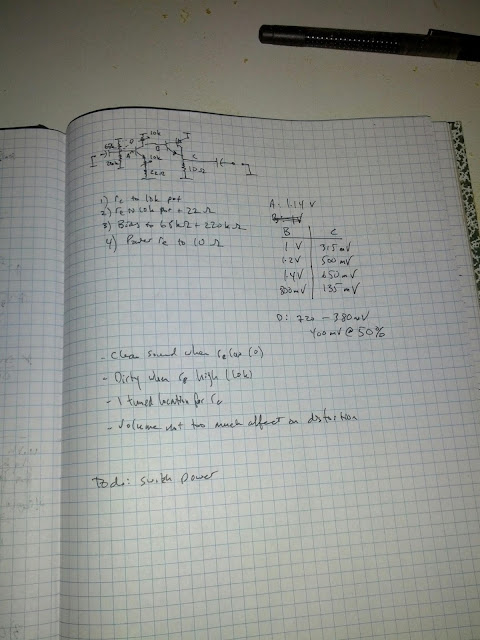 10k
10k
22Ω
B
C
10Ω
1) rc to 10k pot
2) re to 10k pot + 22Ω
3) Bias to 68kΩ + 220kΩ
4) Power re to 10Ω
A: 1.14 V
B: 1V
B C
1 V 315mV
1.2V 500mV
1.4V 650mV
800mV 135mV
D: 720 - 380mV
400mV @ 50%
- Clean sound when re low (0)
- Dirty when re high (10k)
- I tuned location for rc
- Volume not too much affect on distortion
Todo: switch power